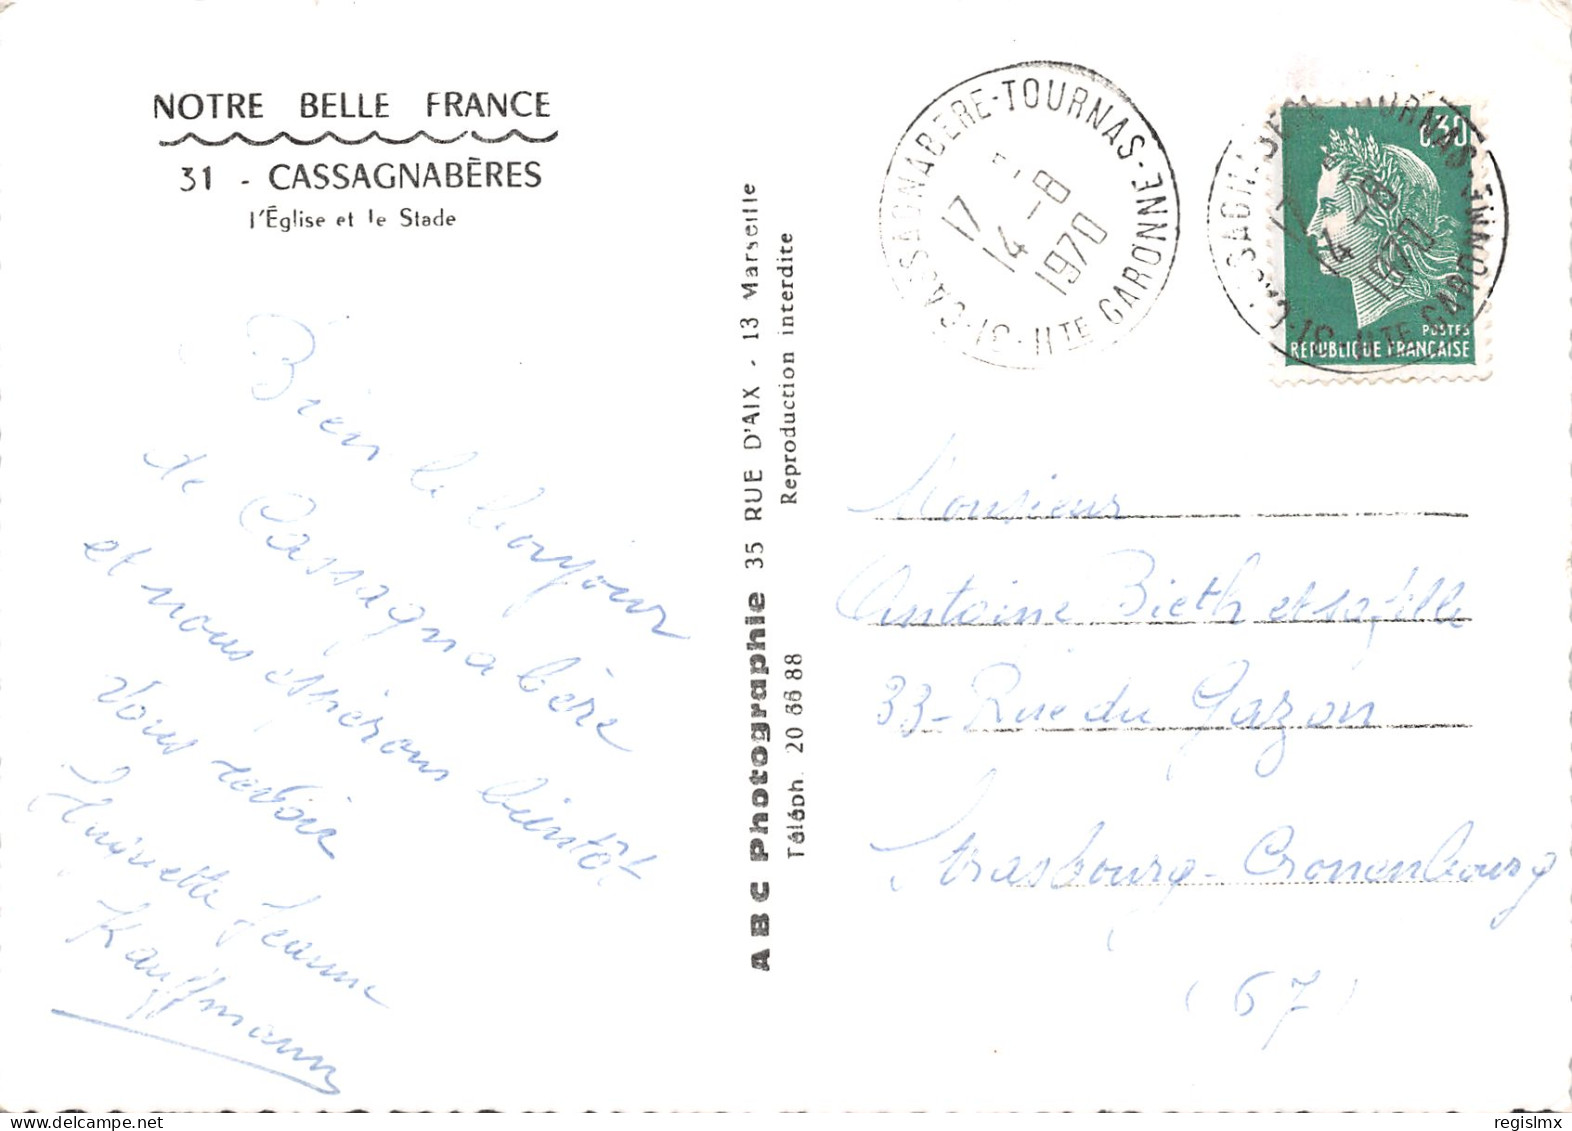 NOTRE BELLE FRANCE
31 - CASSAGNABÈRES
l'Église et le Stade
Bien le bonjour
de Cassagnabère
et nous espérons bientôt
vous revoir
Huguette Jeanne
Kauffmann
ABC Photographie 35 RUE D'AIX - 13 Marseille
Téléph. 20 66 88 Reproduction interdite
CASSAGNABERE-TOURNAS-31-HTE GARONNE
17
14-8
1970
CASSAGNABERE-TOURNAS-31-HTE GARONNE
17
14-8
1970
0,30
POSTES
REPUBLIQUE FRANÇAISE
Monsieur
Antoine Bieth et sa fille
33 - Rue du Gazon
Strasbourg - Cronenbourg
(67)
regislmx